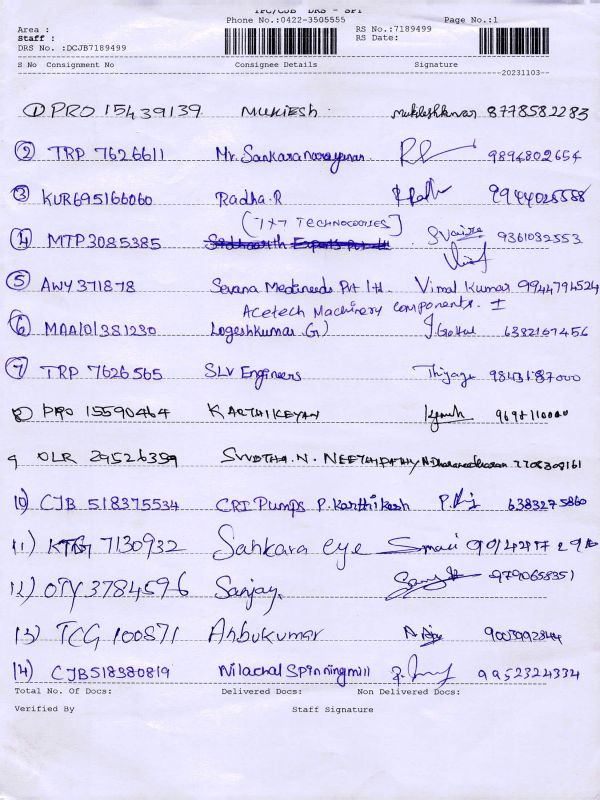 TPC/CJB DRS - SPT
Phone No.:0422-3505555 Page No.:1
Area : RS No.:7189499
Staff : RS Date:
DRS No. :DCJB7189499
S No Consignment No Consignee Details Signature
20231103
① PRO 15439139 MUKIESH. Mukleshkumar 8778582283
② TRP 7626611 Mr. Sankaranarayanan 9894802654
③ KUR695166060 Radha.R 9944028558
[7x7 TECHNOLOGIES]
④ MTP3085385 9361032553
⑤ AWY 371878 Sevana Medineeds Pvt ltd. Vimal Kumar 9944794524
Acetech Machinery Components. I
⑥ MAA101381230 Logeshkumar. G) 6382167456
⑦ TRP 7626565 SLV Engineers Thiyagu 9843187000
8) PRO 15590464 KARTHIKEYAN
9 DLR 29526359 SWDTHA. N. NEETHIPATHY N. Dharaneedharan 7708308161
10) CJB 518375534 CRI Pumps P. Karthikesh 6383275860
11) 7130932 Sankara eye
12) OTY 3784596 Sanjay. 9790658351
13) TCG 100871 Anbukumar
14) CJB518380819 Nilachal Spinning mill 9952324334
Total No. Of Docs: Delivered Docs: Non Delivered Docs:
Verified By Staff Signature